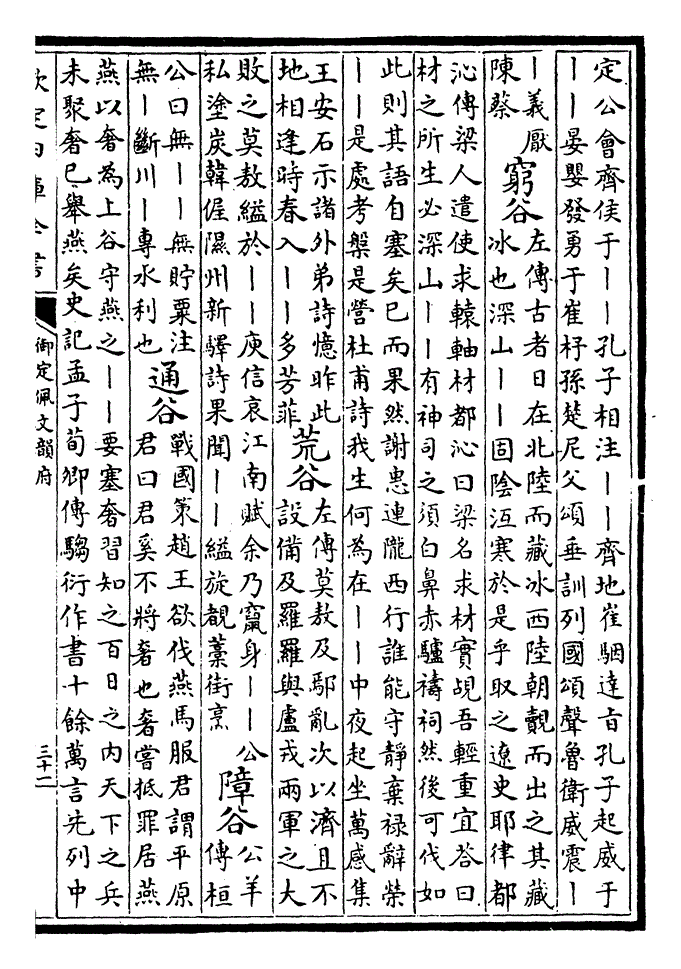 定公會齊侯于丨丨孔子相注丨丨齊地崔駰達旨孔子起威于
丨丨晏嬰發勇于崔杼孫楚尼父頌垂訓列國頌聲魯衛威震丨
丨義厭
陳蔡
窮谷
左傳古者日在北陸而藏冰西陸朝覿而出之其藏
冰也深山丨丨固陰沍寒於是乎取之遼史耶律都
沁傳梁人遣使求轅軸材都沁曰梁名求材實覘吾輕重宜答曰
材之所生必深山丨丨有神司之須白鼻赤驢禱祠然後可伐如
此則其語自塞矣已而果然謝惠連隴西行誰能守靜棄祿辭榮
丨丨是處考槃是營杜甫詩我生何為在丨丨中夜起坐萬感集
王安石示諸外弟詩憶昨此
地相逢時春入丨丨多芳菲
荒谷
左傳莫敖及鄢亂次以濟且不
設備及羅羅與盧戎兩軍之大
敗之莫敖縊於丨丨庾信哀江南賦余乃竄身丨丨公
私塗炭韓偓隰州新驛詩果聞丨丨縊旋覩藁街烹
障谷
公羊
傳桓
公曰無丨丨無貯粟注
無丨斷川丨專水利也
通谷
戰國策趙王欲伐燕馬服君謂平原
君曰君奚不將奢也奢嘗抵罪居燕
燕以奢為上谷守燕之丨丨要塞奢習知之百日之内天下之兵
未聚奢已舉燕矣史記孟子荀卿傳騶衍作書十餘萬言先列中
欽定四庫全書
御定佩文韻府
三十二